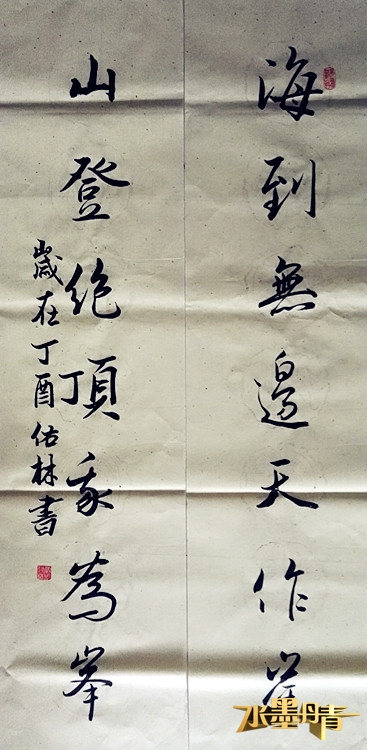 海到無邊天作岸
山登絶頂我為峯
歲在丁酉佑林書
水墨丹青